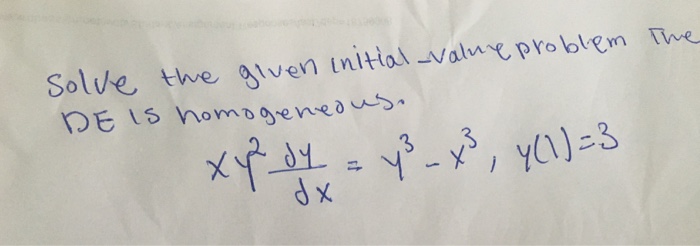 Solve the given initial-value problem The
DE is homogeneous.
xy² dy/dx = y³ - x³, y(1)=3